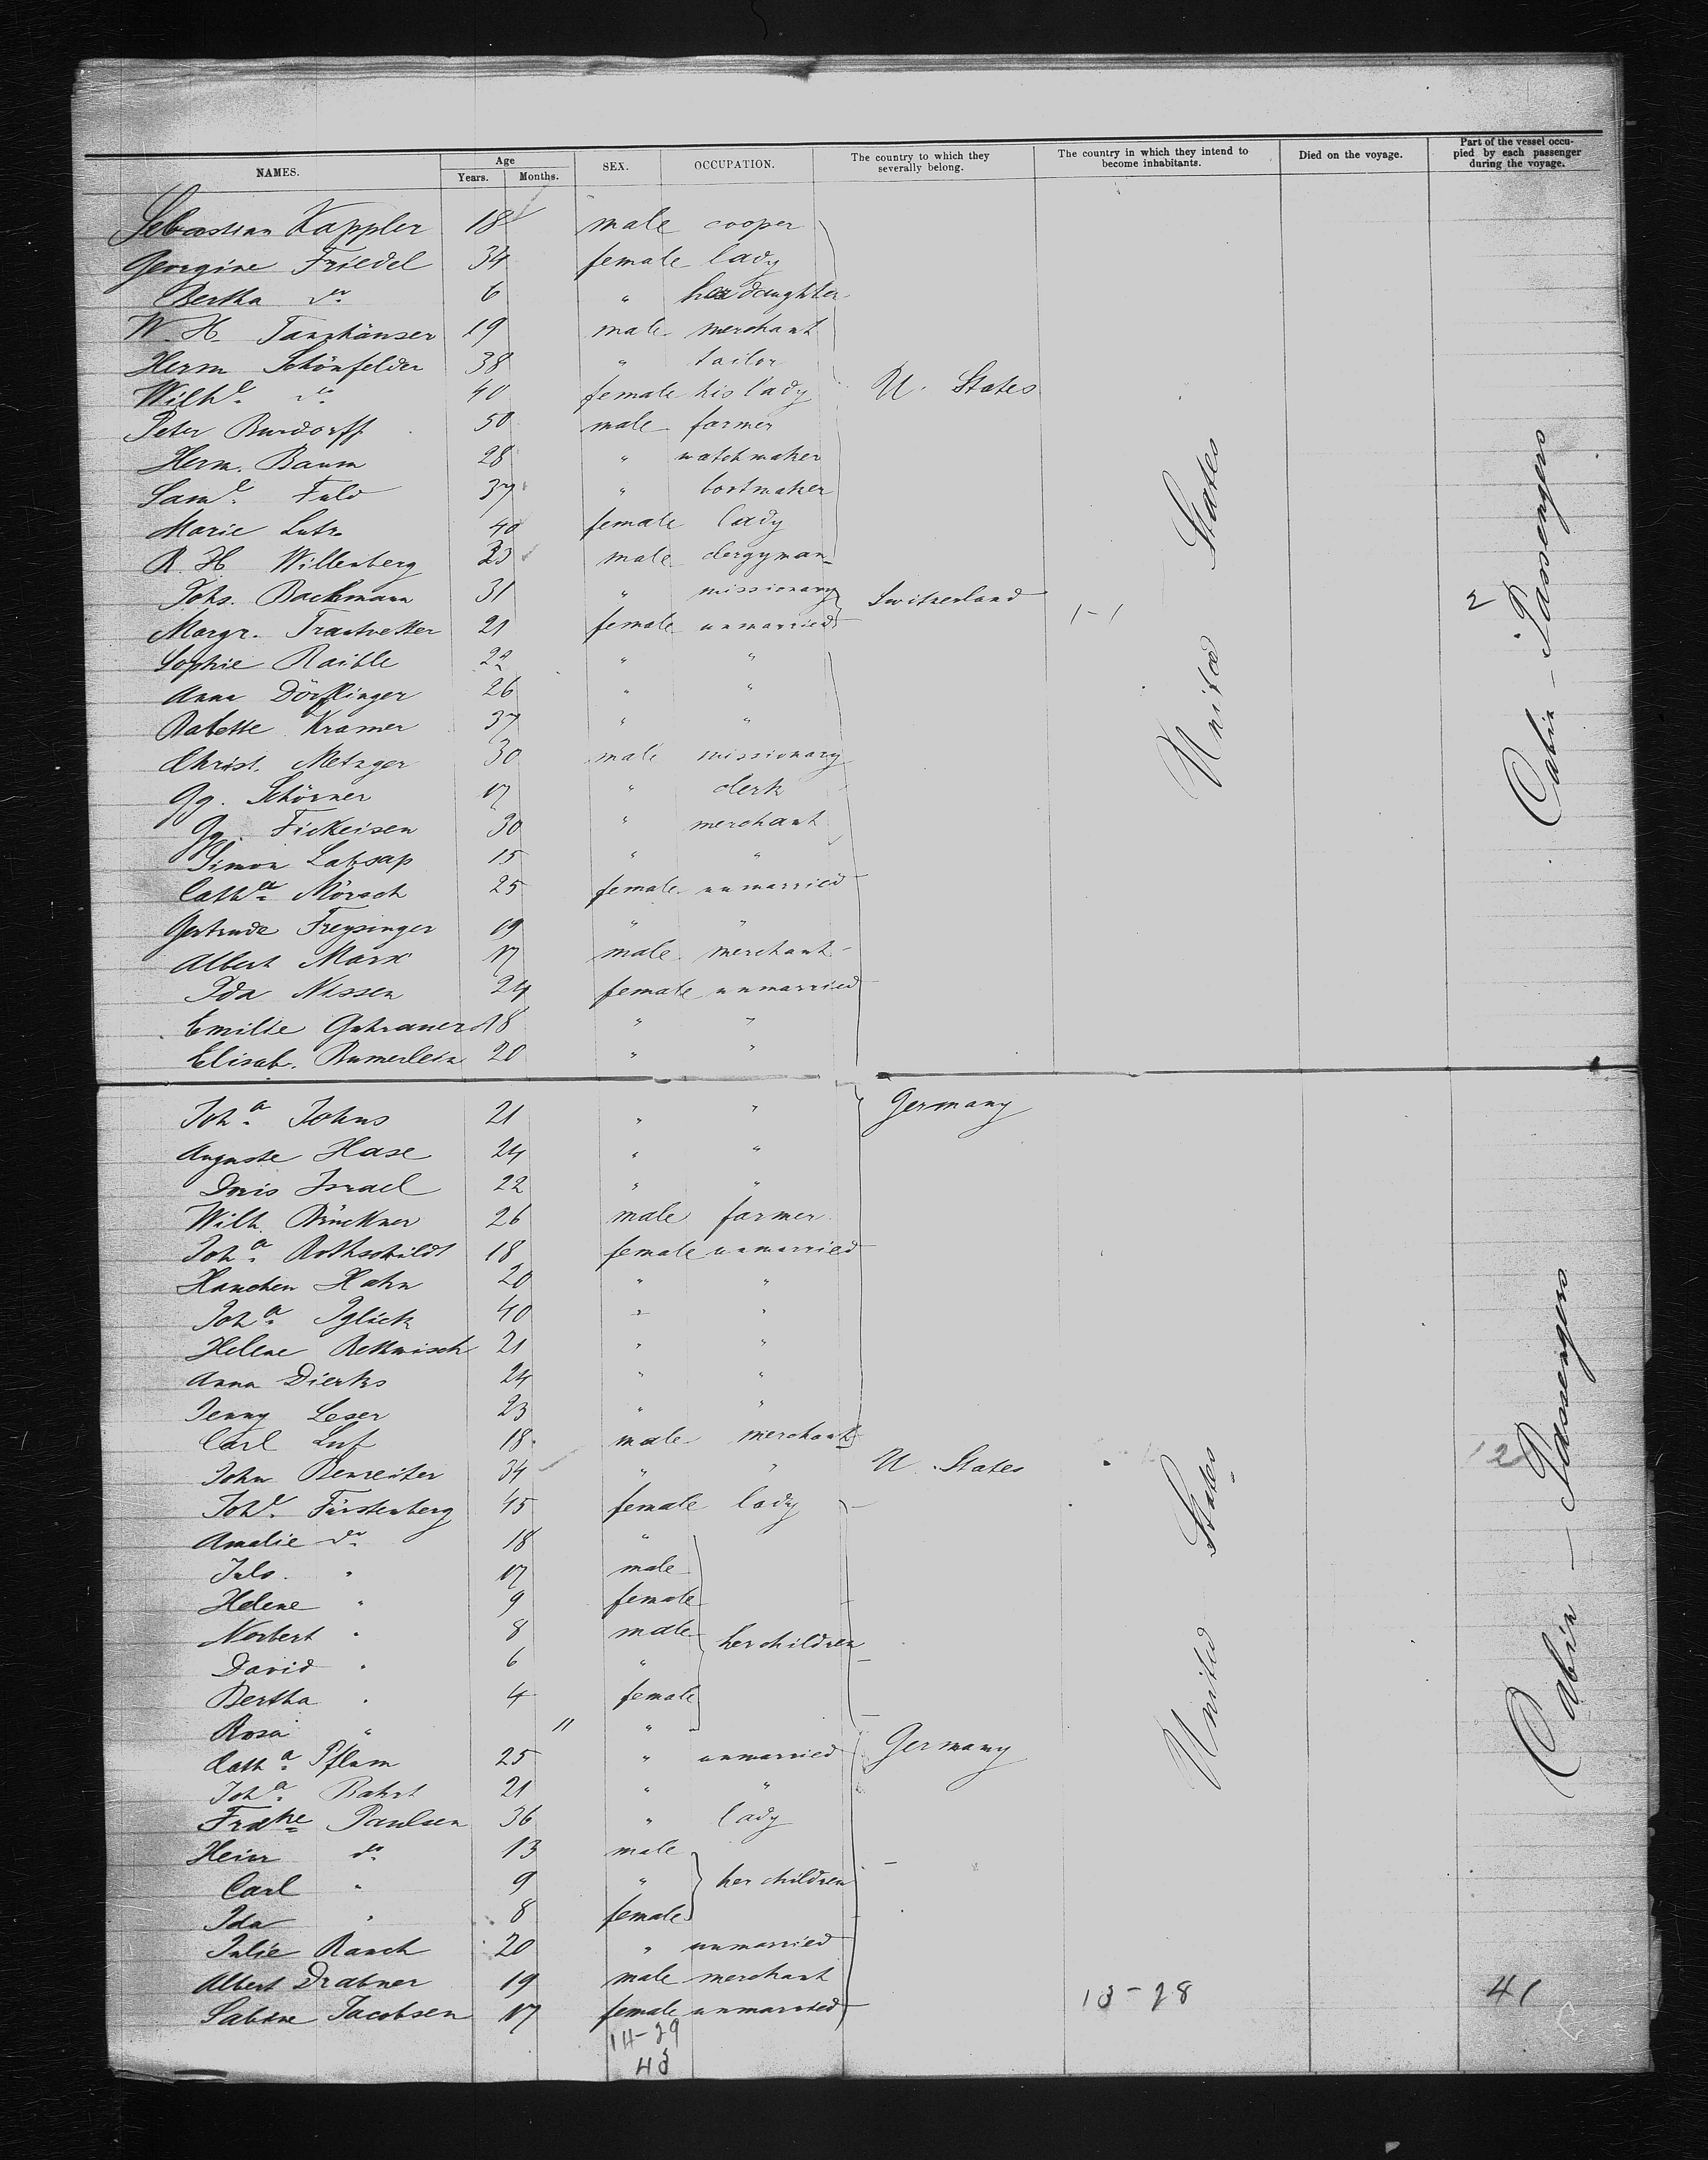 NAMES. Age Years. Months. SEX. OCCUPATION. The country to which they severally belong. The country in which they intend to become inhabitants. Died on the voyage. Part of the vessel occupied by each passenger during the voyage.
Sebastian Kappler 18 male cooper
Georgine Friedel 34 female lady
Bertha do 6 " her daughter
W. H. Tanzhäuser 19 male merchant
Herm Schönfelder 38 " tailor
Wilhe do 40 female his lady U. States
Peter Burdorff 50 male farmer
Herm. Baum 28 " watchmaker
Saml. Fuld 37 " bootmaker
Marie Lutz 40 female lady
R. H Willenberg 23 male clergyman
Johs. Bachmann 31 " missionary Switzerland 2
Margr. Trautvetter 21 female unmarried 1-1
Sophie Raible 22 " "
Anna Dörflinger 26 " "
Babette Kramer 37 " "
Christ. Metzger 30 male missionary
Gg. Schörner 17 " clerk
Gg. Fickeisen 30 " merchant
Simon Labsap 15 " "
Catha Mörsch 25 female unmarried
Gertrude Freysinger 19 " "
Albert Marx 17 male merchant
Ida Nissen 24 female unmarried
Emilie Guhrauer 18 " "
Elisab. Bumerlein 20 " "
United States
Cabin - Passengers
Joha Johns 21 " " Germany
Auguste Hase 24 " "
Doris Israel 22 " "
Wilh. Brückner 26 male farmer
Joha Rothschildt 18 female unmarried
Hanchen Hahn 20 " "
Joha Iglick 40 " "
Helene Rethwisch 21 " "
Anna Dierks 24 " "
Jenny Leser 23 " "
Carl Luf 18 male merchant
John Benreiter 34 " " U. States 12
Johe Fürstenberg 45 female lady
Amalie do 18 "
Juls. " 17 male
Helene " 9 female
Norbert " 8 male her children
David " 6 "
Bertha " 4 female
Rosa " 11 "
Catha Pflum 25 " unmarried Germany
Joha Bahrt 21 " "
Fredke Paulsen 36 " lady
Heinr do 13 male
Carl " 9 " her children
Ida " 8 female
Julie Rauch 20 " unmarried
Albert Drabner 19 male merchant 13-28 41
Sabine Jacobsen 17 female unmarried
United States
Cabin - Passengers
14-29
43